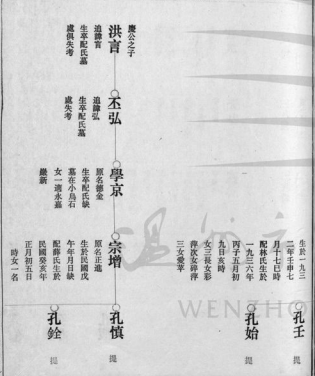 慶公之子
洪言
追諱言
生卒配氏墓
處俱失考
丕弘
追諱弘
生卒配氏墓
處失考
學京
原名德金
生卒配氏缺
墓在小烏石
女一適永嘉
嚴新
宗增
原名正進
生於民國戊
午年月日缺
配薛氏生於
民國癸亥年
正月初五日
時女一名
生於一九三
二年壬申七
月十七巳時
配林氏生於
一九三六年
丙子五月初
九日亥時
女三長女彩
萍次女碎萍
三女愛苹
孔壬
提
孔始
提
孔慎
提
孔銓
提
溫州市
WENZHO